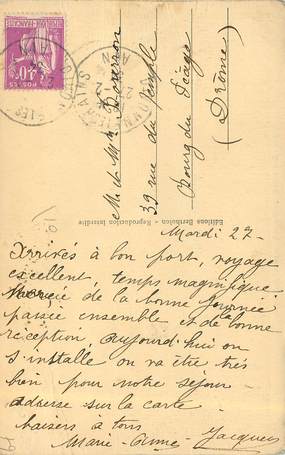 RÉPUBLIQUE FRANÇAISE
POSTES
40c
DIVONNE-LES-BAINS
AIN
M. et Mme
39 rue du Temple
Bourg du Péage
(Drôme)
Editions Berthelon - Reproduction Interdite
Mardi 27-
Arrivés à bon port, voyage
excellent, temps magnifique
de la bonne journée
passée ensemble et de la bonne
réception, aujourd'hui on
s'installe on va être très
bien pour notre séjour-
adresse sur la carte-
baisers à tous
Marie-Aimée-Jacques